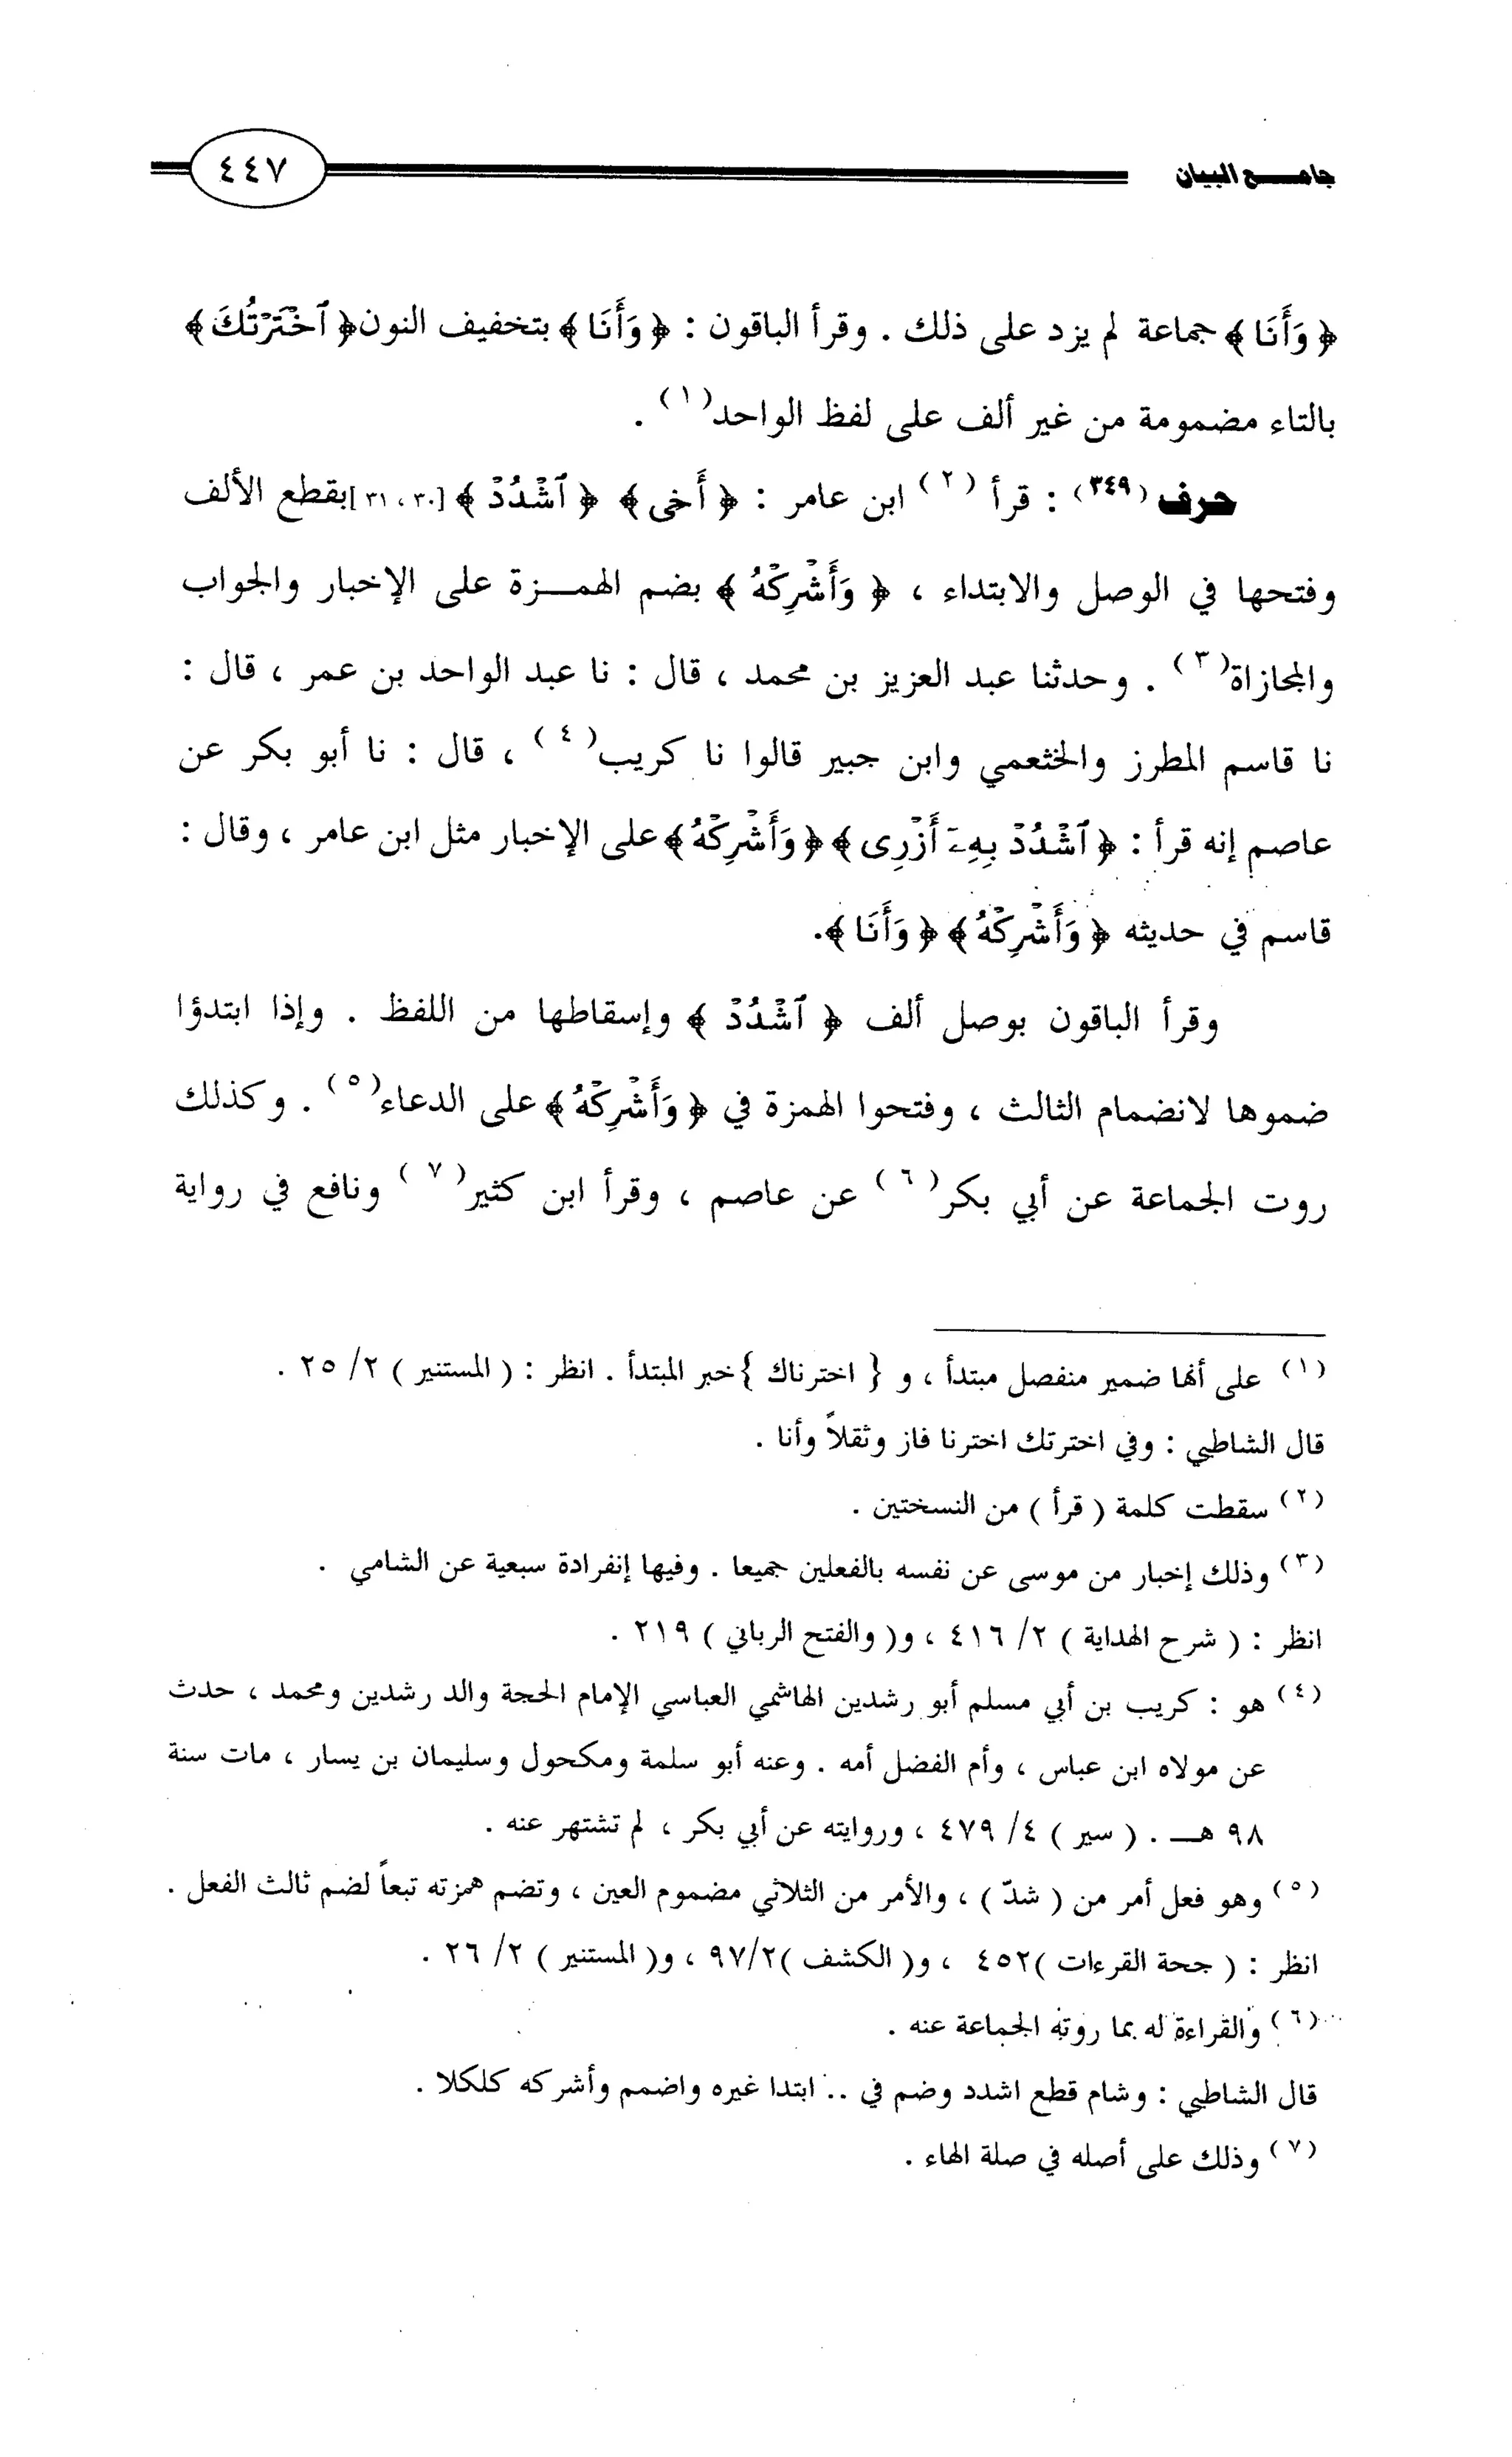 جامــع البيان
٤٤٧
﴿ وَأَنَا ﴾ جماعة لم يزد على ذلك . وقرأ الباقون : ﴿ وَأَنَا ﴾ بتخفيف النون﴿ ٱخْتَرْتُكَ ﴾
بالتاء مضمومة من غير ألف على لفظ الواحد(١) .
حرف (٣٤٩) : قرأ (٢) ابن عامر : ﴿ أَخِى ﴾ ﴿ ٱشْدُدْ ﴾ [٣٠ ، ٣١]بقطع الألف
وفتحها في الوصل والابتداء ، ﴿ وَأَشْرِكْهُ ﴾ بضم الهمــزة على الإخبار والجواب
والمجازاة(٣) . وحدثنا عبد العزيز بن محمد ، قال : نا عبد الواحد بن عمر ، قال :
نا قاسم المطرز والخثعمي وابن جبير قالوا نا كريب(٤) ، قال : نا أبو بكر عن
عاصم إنه قرأ : ﴿ ٱشْدُدْ بِهِۦٓ أَزْرِى ﴾ ﴿ وَأَشْرِكْهُ ﴾على الإخبار مثل ابن عامر ، وقال :
قاسم في حديثه ﴿ وَأَشْرِكْهُ ﴾ ﴿ وَأَنَا ﴾.
وقرأ الباقون بوصل ألف ﴿ ٱشْدُدْ ﴾ وإسقاطها من اللفظ . وإذا ابتدؤا
ضموها لانضمام الثالث ، وفتحوا الهمزة في ﴿ وَأَشْرِكْهُ ﴾على الدعاء(٥) . وكذلك
روت الجماعة عن أبي بكر(٦) عن عاصم ، وقرأ ابن كثير(٧) ونافع في رواية
(١) على أنها ضمير منفصل مبتدأ ، و { اخترناك }خبر المبتدأ . انظر : ( المستنير ) ٢/ ٢٥ .
قال الشاطبي : وفي اخترتك اخترنا فاز وثقلاً وأنا .
(٢) سقطت كلمة ( قرأ ) من النسختين .
(٣) وذلك إخبار من موسى عن نفسه بالفعلين جميعا . وفيها إنفرادة سبعية عن الشامي .
انظر : ( شرح الهداية ) ٢/ ٤١٦ ، و( والفتح الرباني ) ٢١٩ .
(٤) هو : كريب بن أبي مسلم أبو رشدين الهاشمي العباسي الإمام الحجة والد رشدين ومحمد ، حدث
عن مولاه ابن عباس ، وأم الفضل أمه . وعنه أبو سلمة ومكحول وسليمان بن يسار ، مات سنة
٩٨ هــ . ( سير ) ٤/ ٤٧٩ ، وروايته عن أبي بكر ، لم تشتهر عنه .
(٥) وهو فعل أمر من ( شدّ ) ، والأمر من الثلاثي مضموم العين ، وتضم همزته تبعاً لضم ثالث الفعل .
انظر : ( جحة القرءات )٤٥٢ ، و( الكشف )٩٧/٢ ، و( المستنير ) ٢/ ٢٦ .
(٦) والقراءة له بما روته الجماعة عنه .
قال الشاطبي : وشام قطع اشدد وضم في .. ابتدا غيره واضمم وأشركه كلكلا .
(٧) وذلك على أصله في صلة الهاء .